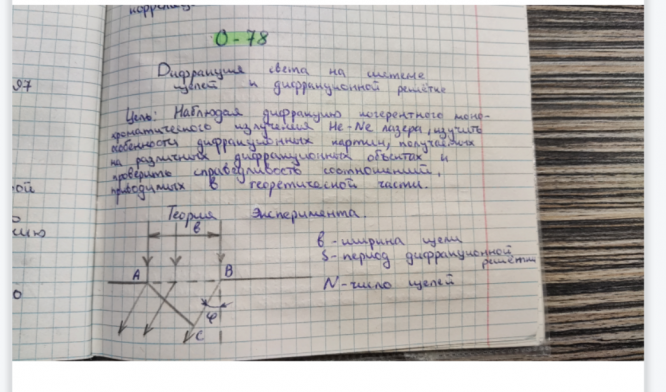 О-78
Дифракция света на системе
щелей и дифракционной решётке
Цель: Наблюдая дифракцию когерентного моно-
хроматического излучения He-Ne лазера, изучить
особенности дифракционных картин, получаемых
на различных дифракционных объектах и
проверить справедливость соотношений,
приводимых в теоретической части.
Теория Эксперимента.
в
в - ширина щели
S - период дифракционной
решётки
A
B
N - число щелей
φ
C